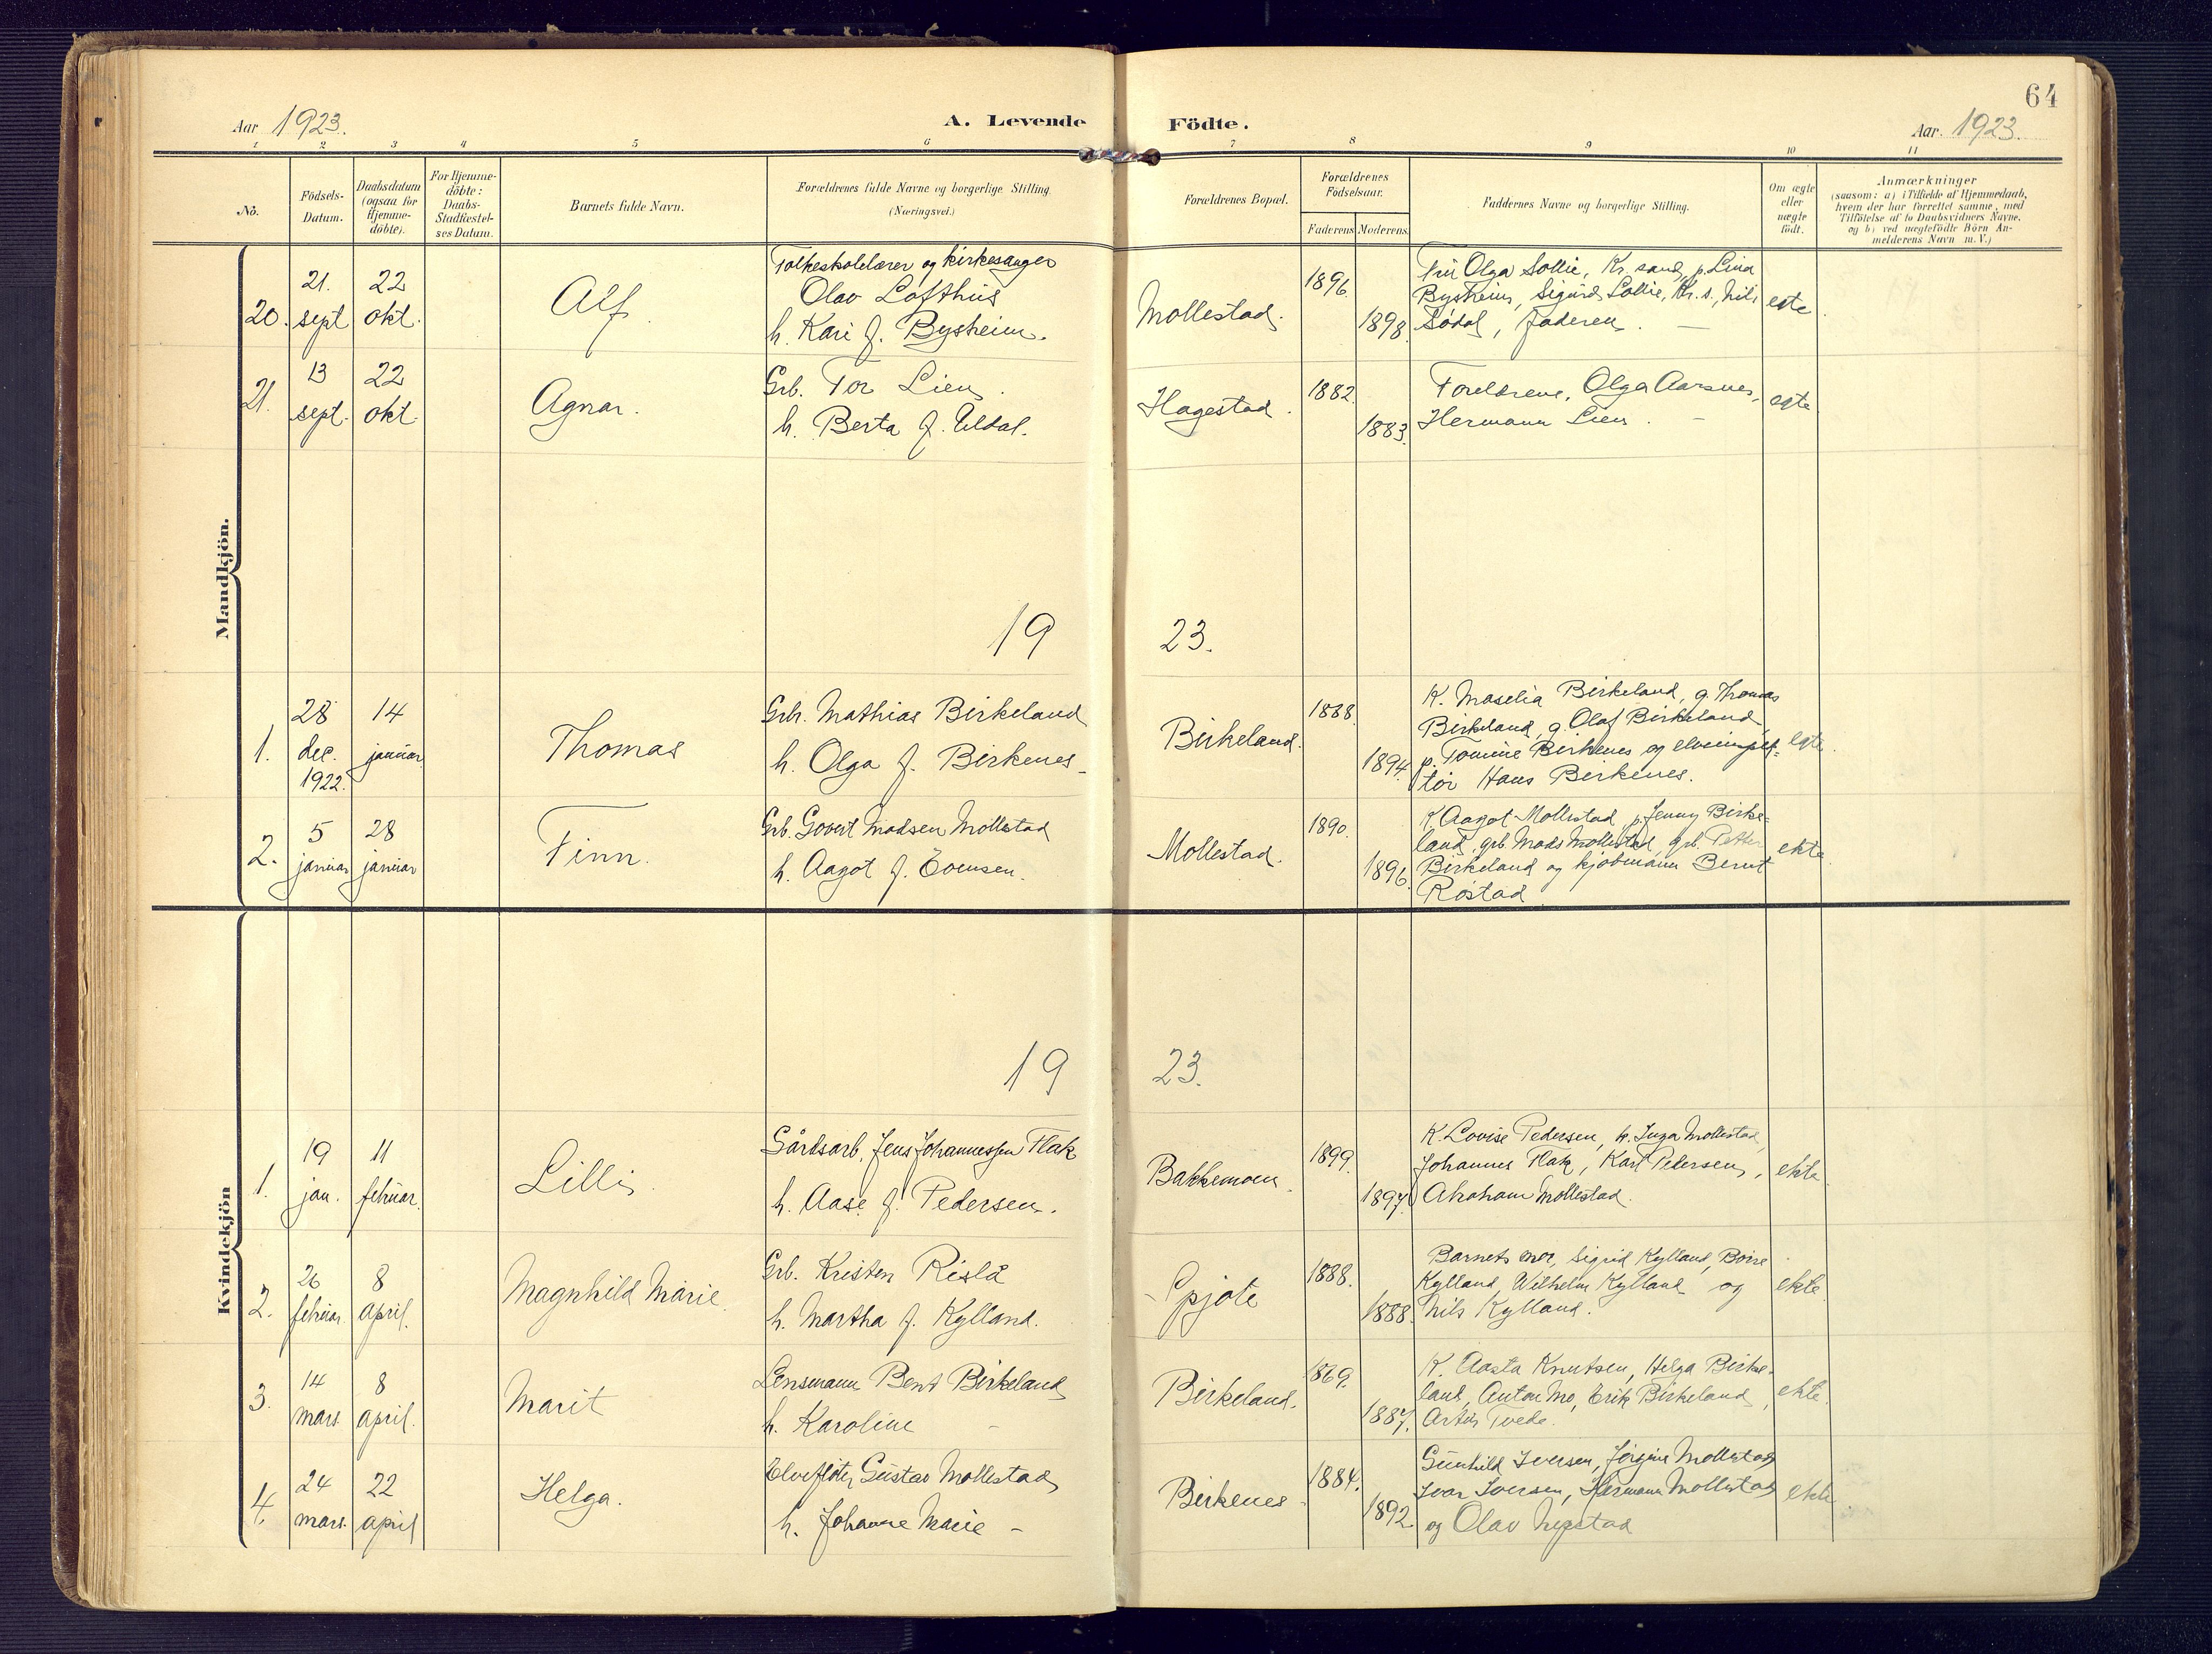 64
Aar 1923.
A. Levende Födte.
Aar. 1923.
1 2 3 4 5 6 7 8 9 10 11
No.
Födsels-
Datum.
Daabsdatum
(ogsaa for
Hjemme-
döbte).
For Hjemme-
döbte:
Daabs-
Stadfæstel-
ses Datum.
Barnets fulde Navn.
Forældrenes fulde Navne og borgerlige Stilling.
(Næringsvei.)
Forældrenes Bopæl.
Forældrenes
Födselsaar.
Faderens Moderens.
Faddernes Navne og borgerlige Stilling.
Om ægte
eller
uægte
födt.
Anmærkninger
(saasom: a) i Tilfælde af Hjemmedaab,
hvem der har forrettet samme, med
Tilföielse af to Daabsvidners Navne.
og b) ved uægtefödte Börn An-
melderens Navn m. V.)
Mandkjön.
20.
21.
sept
22
okt.
Alf.
Folkeskolelærer og kirkesanger
Olav Lofthus
h. Kari f. Bysheim.
Mollestad.
1896.
1898.
Fru Olga Sollie, Kr. sand, p. Lina
Bysheim, Sigurd Sollie, Kr. s., Nils
Sødal, faderen. —
egte
21.
13
sept.
22
okt.
Agnar.
Grb. Tor Lien.
h. Berta f. Uldal.
Hagestad.
1882.
1883.
Foreldrene, Olga Aarsnes,
Hermann Lien. —
egte
19 23.
1.
28
dec.
1922.
14
januar
Thomas
Grb. Mathias Birkeland
h. Olga f. Birkenes
Birkeland.
1888.
1894.
K. Maselia Birkeland, g. Thomas
Birkeland, g. Olaf Birkeland
p. Tomine Birkenes og elveinspek-
tør Hans Birkenes.
egte.
2.
5
januar
28
januar
Finn.
Grb. Govert Madsen Mollestad
h. Aagot f. Evensen.
Mollestad.
1890.
1896.
K. Aagot Mollestad, p. Jenny Birke-
land, grb. Mads Mollestad, grb. Petter
Birkeland og kjøbmann Bernt
Røstad.
ekte.
Kvindekjön
19 23.
1.
19
jan.
11
februar.
Lilli.
Gårdsarb. Jens Johannessen Flak
h. Aase f. Pedersen.
Bakkemoen.
1899.
1897.
K. Lovise Pedersen, k. Inga Mollestad,
Johannes Flak, Karl Pedersen,
Abraham Mollestad.
ekte.
2.
26
februar.
8
april.
Magnhild Marie.
Grb. Kristen Rislå
h. Martha f. Kylland.
1888.
1888.
Barnets mor, Sigrid Kylland,
Kylland, Wilhelm Kylland og
Nils Kylland.
ekte.
3.
14
mars.
8
april.
Marit
Lensmann Bent Birkeland
h. Karoline —
Birkeland.
1869.
1887.
K. Aasta Knutsen, Helga Birke-
land, Anton Mo, Erik Birkeland,
Tvede.
ekte.
4.
24
mars.
22
april
Helga.
Elvefløter Gustav Mollestad
h. Johanne Marie —
Birkenes
1884.
1892
Gunhild Iversen, Jørgine Mollestad
Ivar Iversen, Hermann Mollestad
og Olav
ekte.